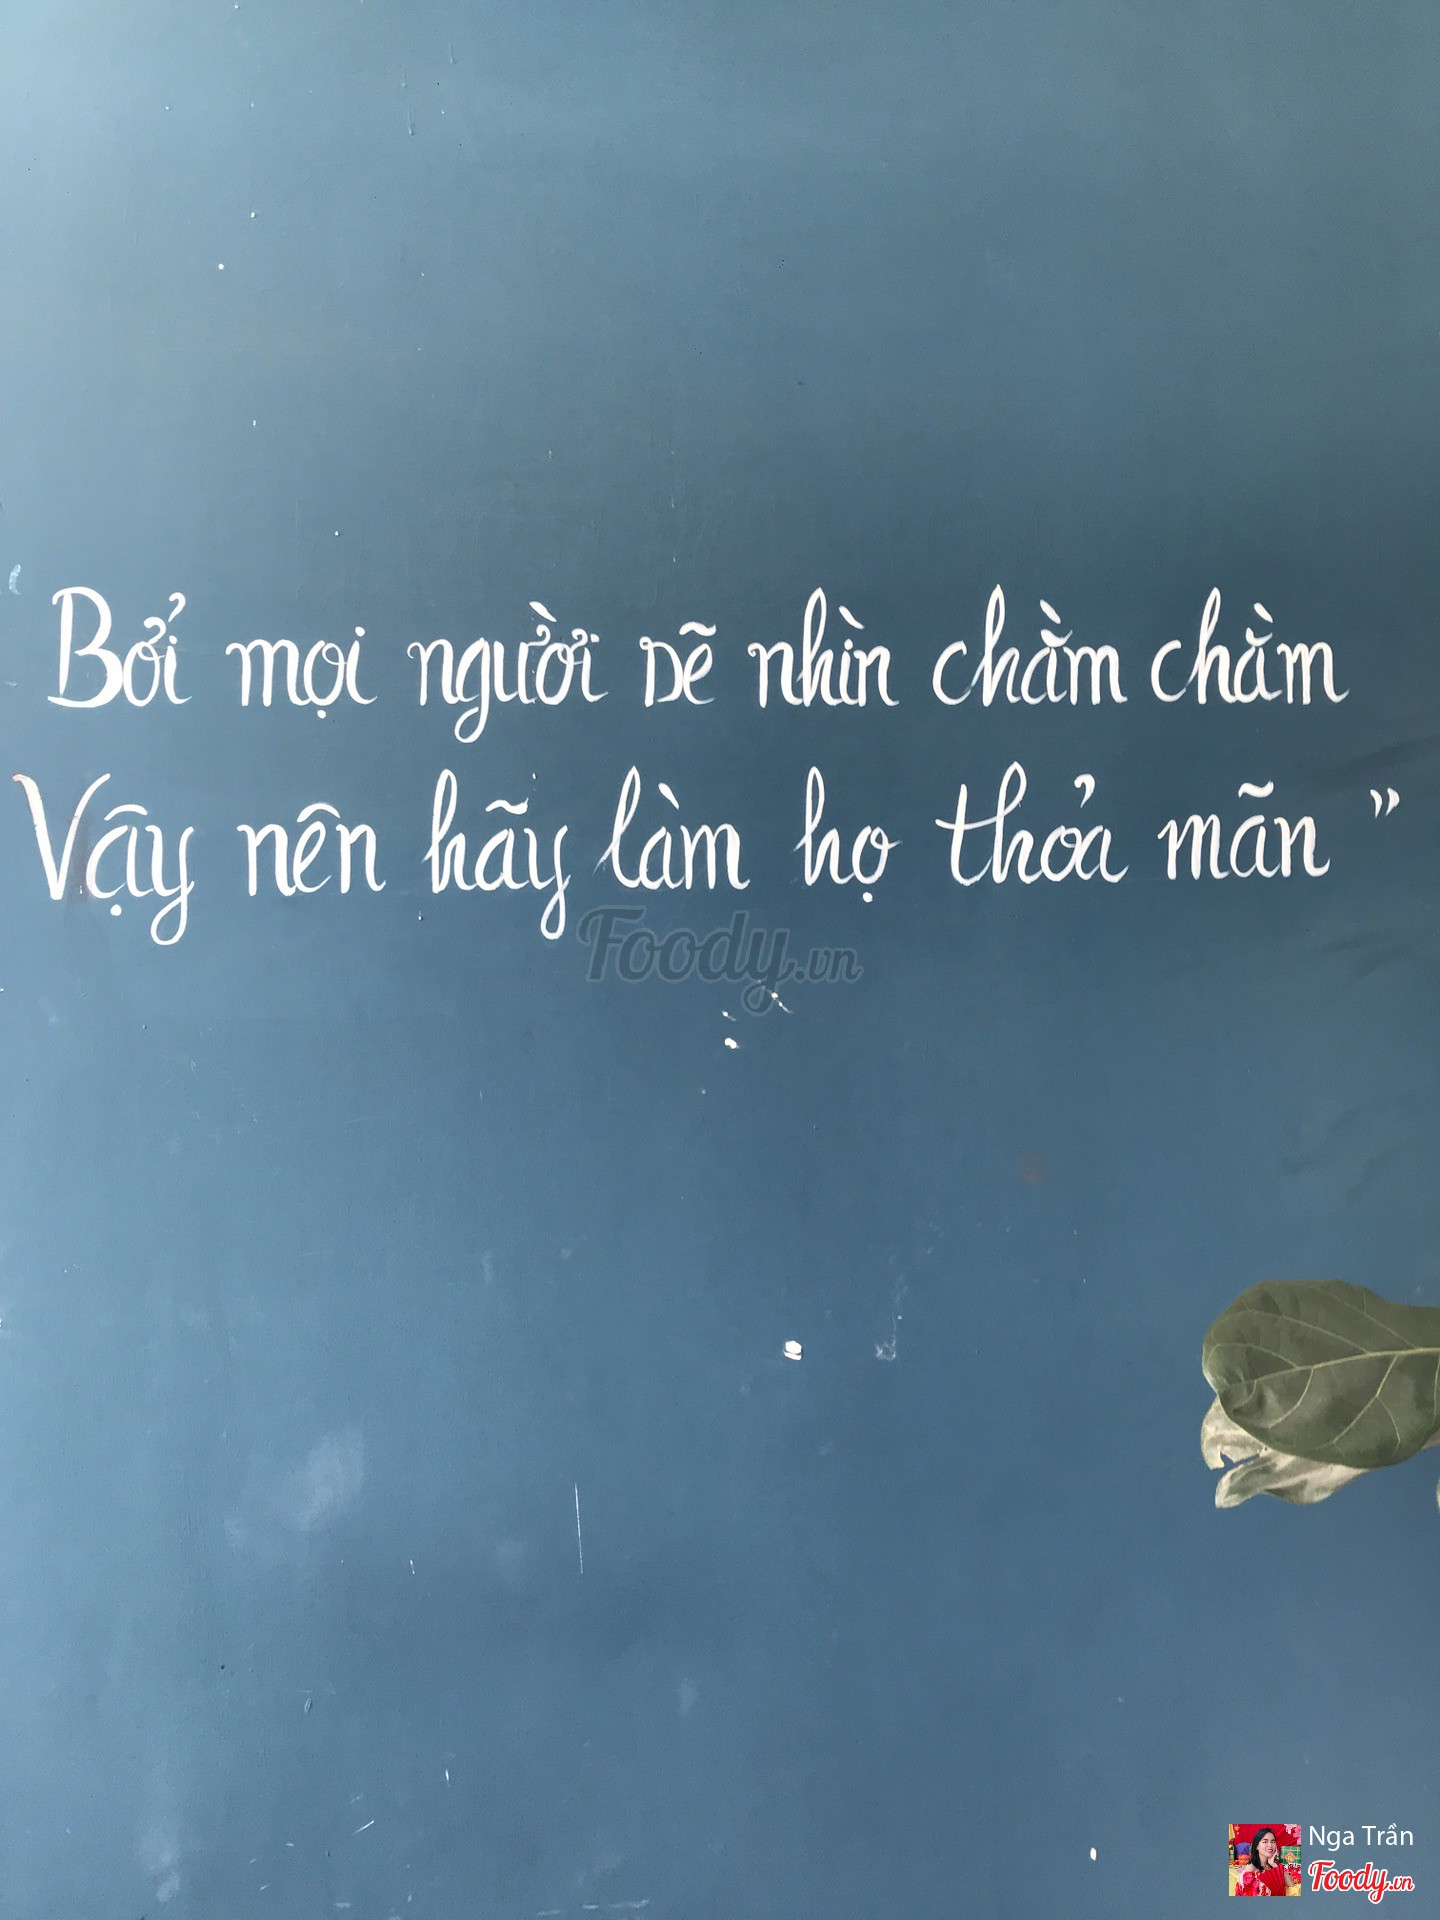 Bởi mọi người dẽ nhìn chằm chằm
Vậy nên hãy làm họ thỏa mãn ”
Foody.vn
Nga Trần
Foody.vn